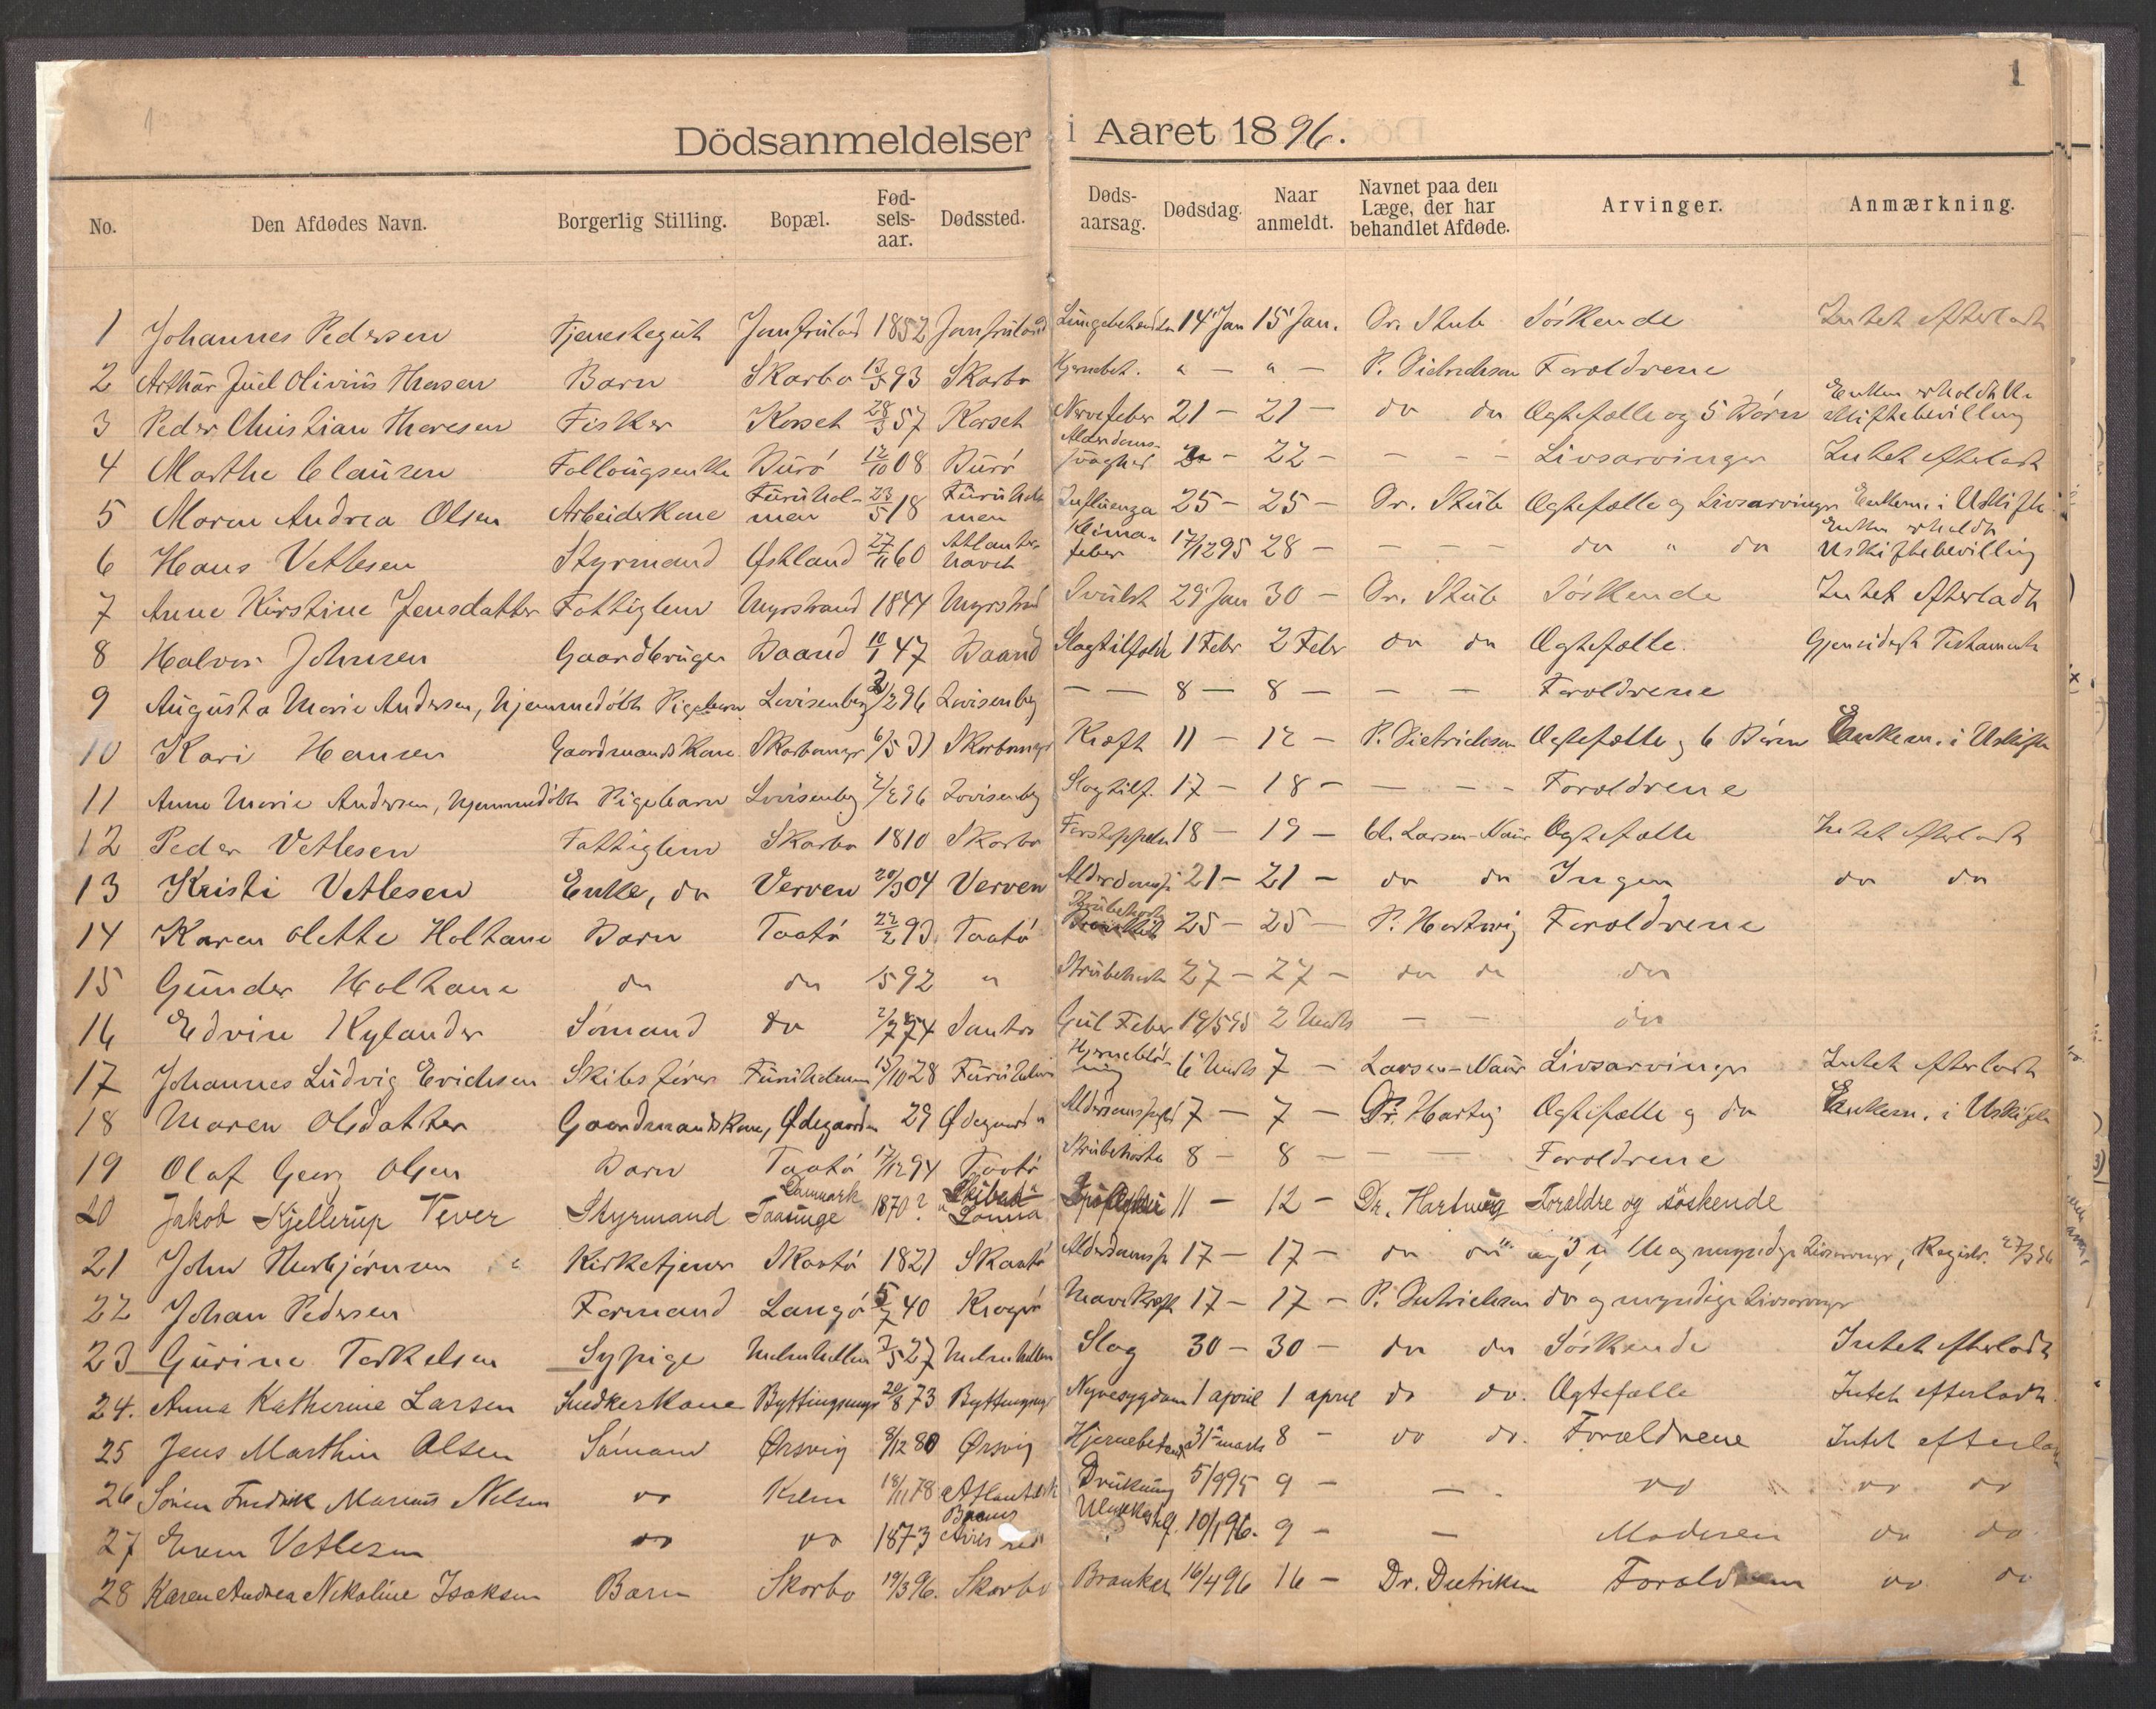 1
Dödsanmeldelser i Aaret 1896.
No. Den Afdødes Navn. Borgerlig Stilling. Bopæl. Fødselsaar. Dødssted. Dødsaarsag. Dødsdag. Naar anmeldt. Navnet paa den Læge, der har behandlet Afdøde. Arvinger. Anmærkning.
1 Johannes Pedersen Tjenestegut Jomfruland 1852 Jomfruland Lungebetændelse 14 Jan 15 Jan. Dr. Stub Söskende Intet efterladt
2 Arthur Juel Olivius Thorsen Barn Skarbo 93 Skarbo Hjernebet. " — " — P. Dietrichson Forældrene
3 Peder Christian Thoresen Fisker Korset 28/3 57 Korset Nervefeber 21 — 21 — do do Ægtefælle og 5 Börn Enken erholdt Uskiftebevilling
4 Marthe Clausen Follougsenke Burö 12/10 08 Burö Alderdomssvaghed — 22 — — — Livsarvinger Intet efterladt
5 Maren Andrea Olsen Arbeiderkone Furuholmen 23/5 18 Furuholmen Influenza 25 — 25 — Dr. Stub Ægtefælle og Livsarvinger Enkem. i Uskifte
6 Hans Vetlesen Styrmand Østland 27/11 60 Atlanterhavet Klimafeber 17/12 95 28 — — — — do " do Enken erholdt Uskiftebevilling
7 Anne Kirstine Jensdatter Fattiglem Myrstrand 1844 Myrstrand Svulst 29 Jan 30 — Dr. Stub Söskende Intet efterladt
8 Halvor Johnsen Gaardbruger Baand 10/1 47 Baand Slagtilfælde 1 Febr 2 Febr do do Ægtefælle. Gjensidigt Testamente
9 Augusta Marie Andersen, hjemmedöbt Pigebarn Lovisenberg 2/2 96 Lovisenberg — — 8 — 8 — — — Forældrene
10 Kari Hansen Gaardmandskone Skarbomyr 6/5 31 Skarbomyr Kræft 11 — 12 — P. Dietrichson Ægtefælle og 6 Börn Enkem. i Uskifte
11 Anne Marie Andersen, hjemmedöbt Pigebarn Lovisenberg 2/2 96 Lovisenberg Slagtilf. 17 — 18 — — — Forældrene
12 Peder Vetlesen Fattiglem Skarbo 1810 Skarbo Forstoppelse 18 — 19 — Cl. Larsen-Naur Ægtefælle Intet efterladt
13 Kristi Vetlesen Enke, do Verven 20/3 04 Verven Alderdomssv. 21 — 21 — do do Ingen do do
14 Karen Olette Holtane Barn Taatö 22/2 93 Taatö Strubehoste 25 — 25 — P. Hartwig Forældrene
15 Gunder Holtane do do 92 " Strubehoste 27 — 27 — do do do
16 Edvin Rylander Sömand do 2/7 74 Santos Gul Feber 19/5 95 2 Marts — — do
17 Johannes Ludvig Erichsen Skibsförer Furuholmen 15/10 28 Furuholmen Hjerneblödning 6 Marts 7 — Larsen-Naur Livsarvinger Intet efterladt
18 Maren Olsdatter Gaardmandskone, Ødegaarden 29 Ødegaarden Alderdomssvaghed 7 — 7 — Dr. Hartvig Ægtefælle og do Enkem. i Uskifte
19 Olaf Georg Olsen Barn Taatö 17/12 94 Taatö Strubehoste 8 — 8 — — — Forældrene
20 Jakob Kjellerup Vever Styrmand Danmark Taasinge 1870? Skibet "Lonna" 11 — 12 — Dr. Hartwig Forældre og söskende
21 John Herbjörnsen Kirketjener Skaatö 1821 Skaatö Alderdomssv. 17 — 17 — do do
22 Johan Pedersen Formand Langö 5/7 40 Kragerö Mavekræft 17 — 17 — P. Dietrichson do og myndige Livsarvinger
23 Gurine Torkelsen Sypige 5 27 Slag 30 — 30 — do do Söskende Intet efterladt
24. Anna Katherine Larsen Snedkerkone Byttingsmyr 20/8 73 Byttingsmyr Nyresygdom 1 april 1 april do do. Ægtefælle Intet efterladt
25 Jens Marthin Olsen Sömand Ørsvig 8/12 80 Ørsvig Hjernebetænd. 31 marts 8 — do do. Forældrene Intet efterladt
26 Sören Fredrik Marius Nilsen do Kilen 18/11 78 Atlanterh Drukning 5/9 95 9 — — do do do
27 Even Vetlesen do do 1873 Buenos Aires red Ulykkestilf. 10/1 96. 9 — — Moderen do do
28 Karen Andrea Nikoline Isaksen Barn Skorbo 19/3 96. Skorbo Bronket 16/4 96 16 — Dr. Dietriksen Forældrene do do